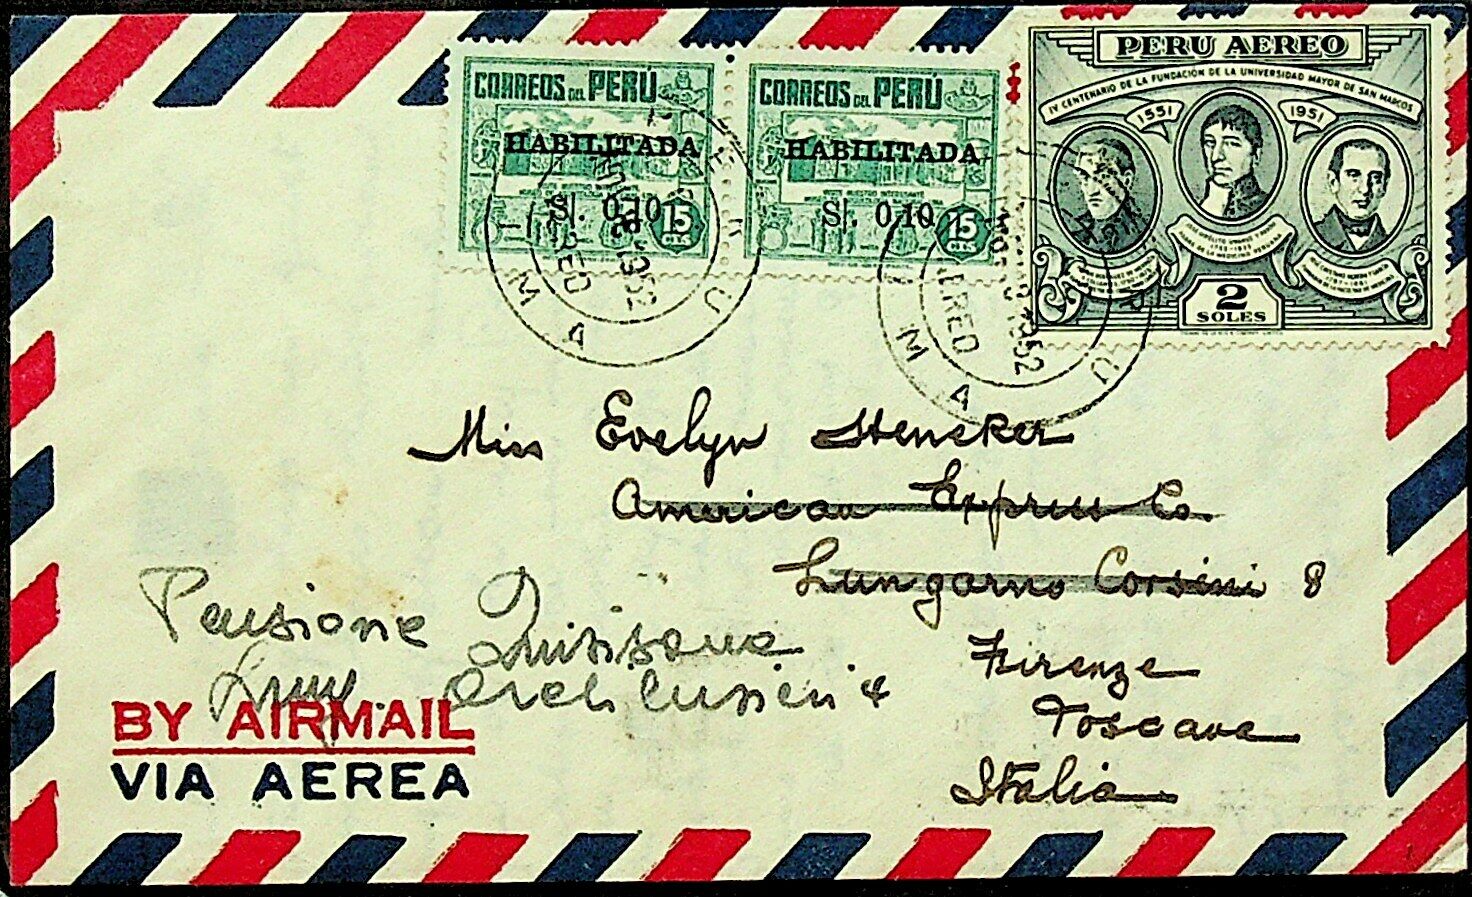 CORREOS DEL PERÚ
HABILITADA
S/. 0.10 15 CTS.
CORREOS DEL PERÚ
HABILITADA
S/. 0.10 15 CTS.
PERU AEREO
IV CENTENARIO DE LA FUNDACIÓN DE LA UNIVERSIDAD MAYOR DE SAN MARCOS
1551 1951
2
SOLES
1952
1952
Miss Evelyn Heneker
American Express Co.
Lungarno Corsini 8
Firenze
Toscana
Italia
Pensione Quisisana
Lung. Archibusieri 4
BY AIRMAIL
VIA AEREA